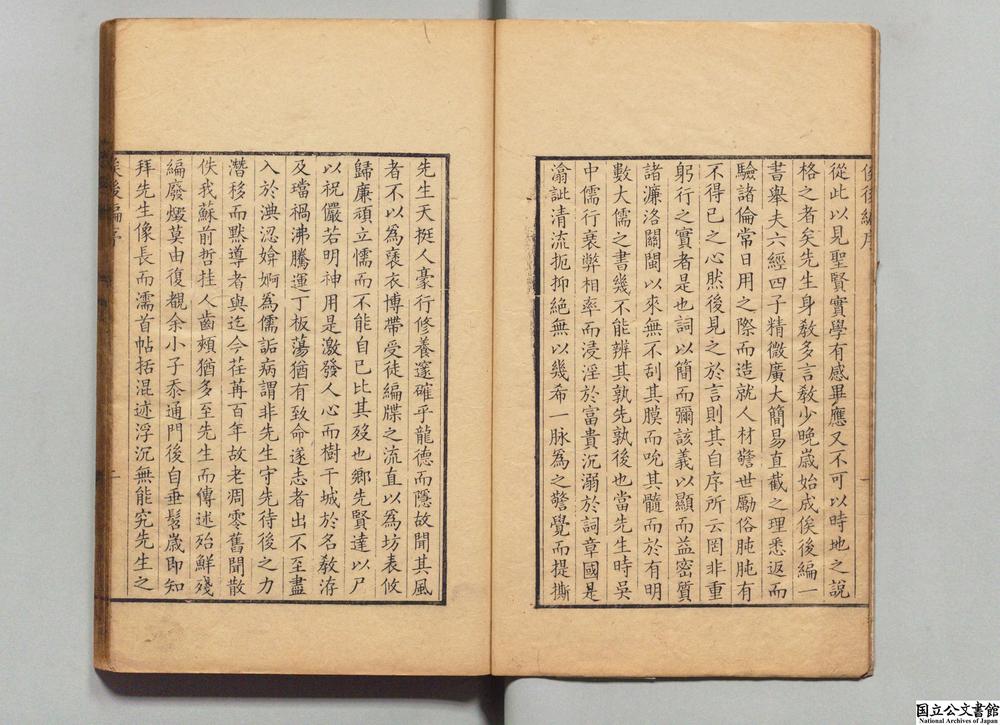 俟後編序
從此以見聖賢實學有感畢應又不可以時地之說
格之者矣先生身敎多言敎少晚歲始成俟後編一
書舉夫六經四子精微廣大簡易直截之理悉返而
驗諸倫常日用之際而造就人材警世勵俗肫肫有
不得已之心然後見之於言則其自序所云罔非重
躬行之實者是也詞以簡而彌該義以顯而益密質
諸濂洛關閩以來無不刮其膜而吮其髓而於有明
數大儒之書幾不能辨其孰先孰後也當先生時吳
中儒行衰弊相率而浸淫於富貴沉溺於詞章國是
淪訿清流扼抑絕無以幾希一脉爲之警覺而提撕
先生天挺人豪行修養邃確乎龍德而隱故聞其風
者不以爲褒衣博帶受徒編牒之流直以爲坊表攸
歸廉頑立懦而不能自已比其歿也鄉先賢達以尸
以祝儼若明神用是激發人心而樹干城於名敎洊
及璫禍沸騰運丁板蕩猶有致命遂志者出不至盡
入於淟涊媕婀爲儒詬病謂非先生守先待後之力
潛移而默導者與迄今荏苒百年故老凋零舊聞散
佚我蘇前哲挂人齒頰猶多至先生而傳述殆鮮殘
編廢燬莫由復覩余小子忝通門後自垂髫歲即知
拜先生像長而濡首帖括混迹浮沉無能究先生之
俟後編序
國立公文書館
National Archives of Japan